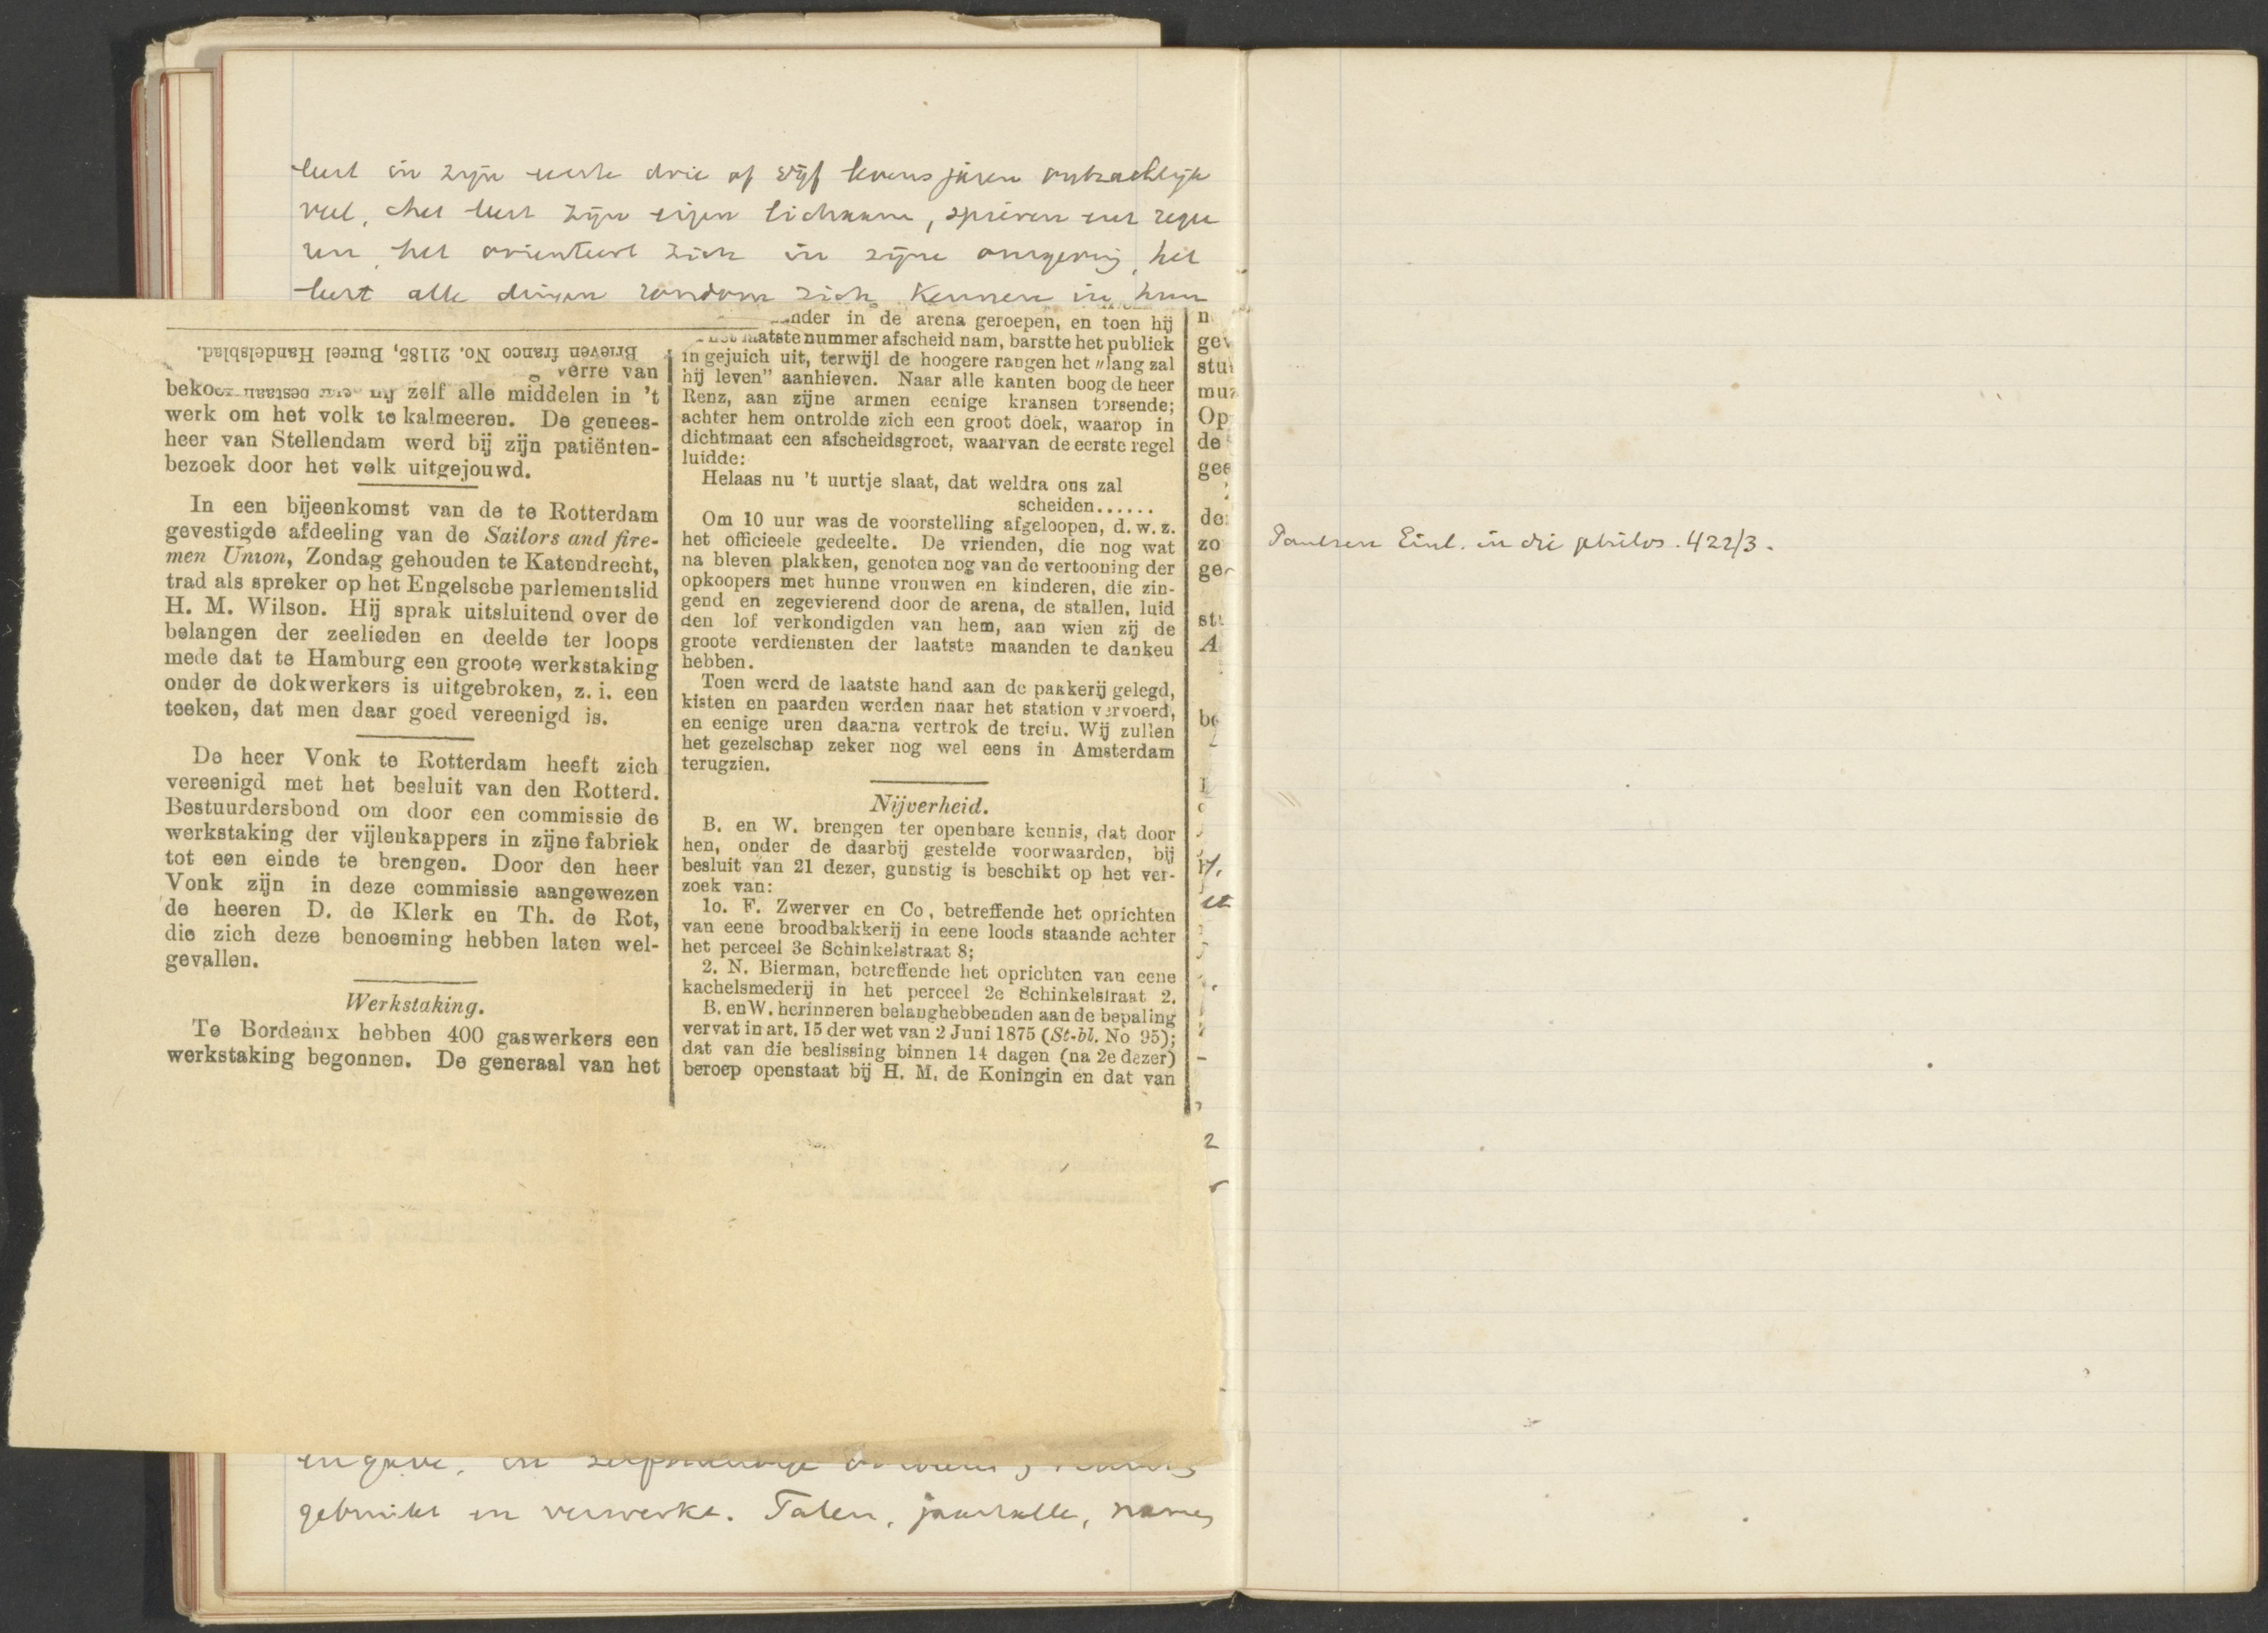 leert in zijn eerste drie of vijf levensjaren ontzachlijk
veel, het leert zijn eigen lichaam, spieren en
het orienteert zich in zijne omgeving, het
leert alle dingen rondom zich kennen in hun
Brieven franco No. 21185, Bureel Handelsblad.
verre van
zelf alle middelen in 't
werk om het volk te kalmeeren. De genees-
heer van Stellendam werd bij zijn patiënten-
bezoek door het volk uitgejouwd.
In een bijeenkomst van de te Rotterdam
gevestigde afdeeling van de Sailors and fire-
men Union, Zondag gehouden te Katendrecht,
trad als spreker op het Engelsche parlementslid
H. M. Wilson. Hij sprak uitsluitend over de
belangen der zeelieden en deelde ter loops
mede dat te Hamburg een groote werkstaking
onder de dokwerkers is uitgebroken, z. i. een
teeken, dat men daar goed vereenigd is.
De heer Vonk te Rotterdam heeft zich
vereenigd met het besluit van den Rotterd.
Bestuurdersbond om door een commissie de
werkstaking der vijlenkappers in zijne fabriek
tot een einde te brengen. Door den heer
Vonk zijn in deze commissie aangewezen
de heeren D. de Klerk en Th. de Rot,
die zich deze benoeming hebben laten wel-
gevallen.
Werkstaking.
Te Bordeaux hebben 400 gaswerkers een
werkstaking begonnen. De generaal van het
in de arena geroepen, en toen hij
laatste nummer afscheid nam, barstte het publiek
in gejuich uit, terwijl de hoogere rangen het „lang zal
hij leven" aanhieven. Naar alle kanten boog de heer
Renz, aan zijne armen eenige kransen torsende;
achter hem ontrolde zich een groot doek, waarop in
dichtmaat een afscheidsgroet, waarvan de eerste regel
luidde:
Helaas nu 't uurtje slaat, dat weldra ons zal
scheiden......
Om 10 uur was de voorstelling afgeloopen, d. w. z.
het officieele gedeelte. De vrienden, die nog wat
na bleven plakken, genoten nog van de vertooning der
opkoopers met hunne vrouwen en kinderen, die zin-
gend en zegevierend door de arena, de stallen, luid
den lof verkondigden van hem, aan wien zij de
groote verdiensten der laatste maanden te danken
hebben.
Toen werd de laatste hand aan de pakkerij gelegd,
kisten en paarden werden naar het station vervoerd,
en eenige uren daarna vertrok de trein. Wij zullen
het gezelschap zeker nog wel eens in Amsterdam
terugzien.
Nijverheid.
B. en W. brengen ter openbare kennis, dat door
hen, onder de daarbij gestelde voorwaarden, bij
besluit van 21 dezer, gunstig is beschikt op het ver-
zoek van:
1o. F. Zwerver en Co, betreffende het oprichten
van eene broodbakkerij in eene loods staande achter
het perceel 3e Schinkelstraat 8;
2. N. Bierman, betreffende het oprichten van eene
kachelsmederij in het perceel 2e Schinkelstraat 2.
B. en W. herinneren belanghebbenden aan de bepaling
vervat in art. 15 der wet van 2 Juni 1875 (St-bl. No 95);
dat van die beslissing binnen 14 dagen (na 2e dezer)
beroep openstaat bij H. M. de Koningin en dat van
gebruikt en verwerkt. Talen, jaartallen, namen
Paulsen Einl. in die philos. 422/3.